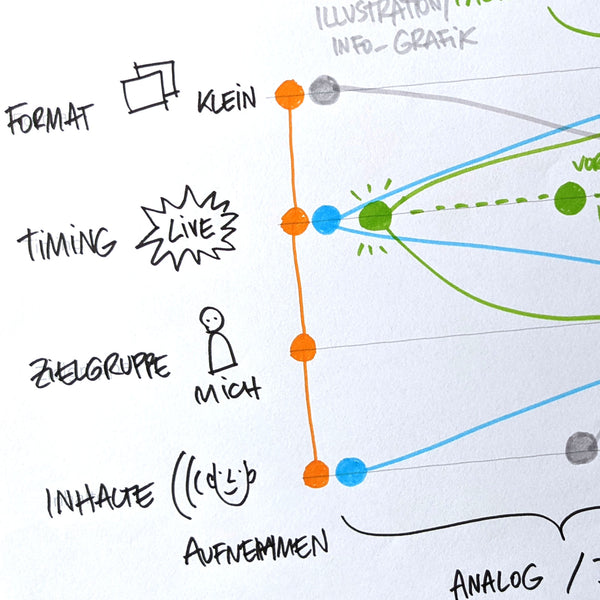 ILLUSTRATION/
INFO-GRAFIK
FORMAT
KLEIN
TIMING
LIVE
ZIELGRUPPE
MICH
INHALTE
AUFNEHMEN
ANALOG /